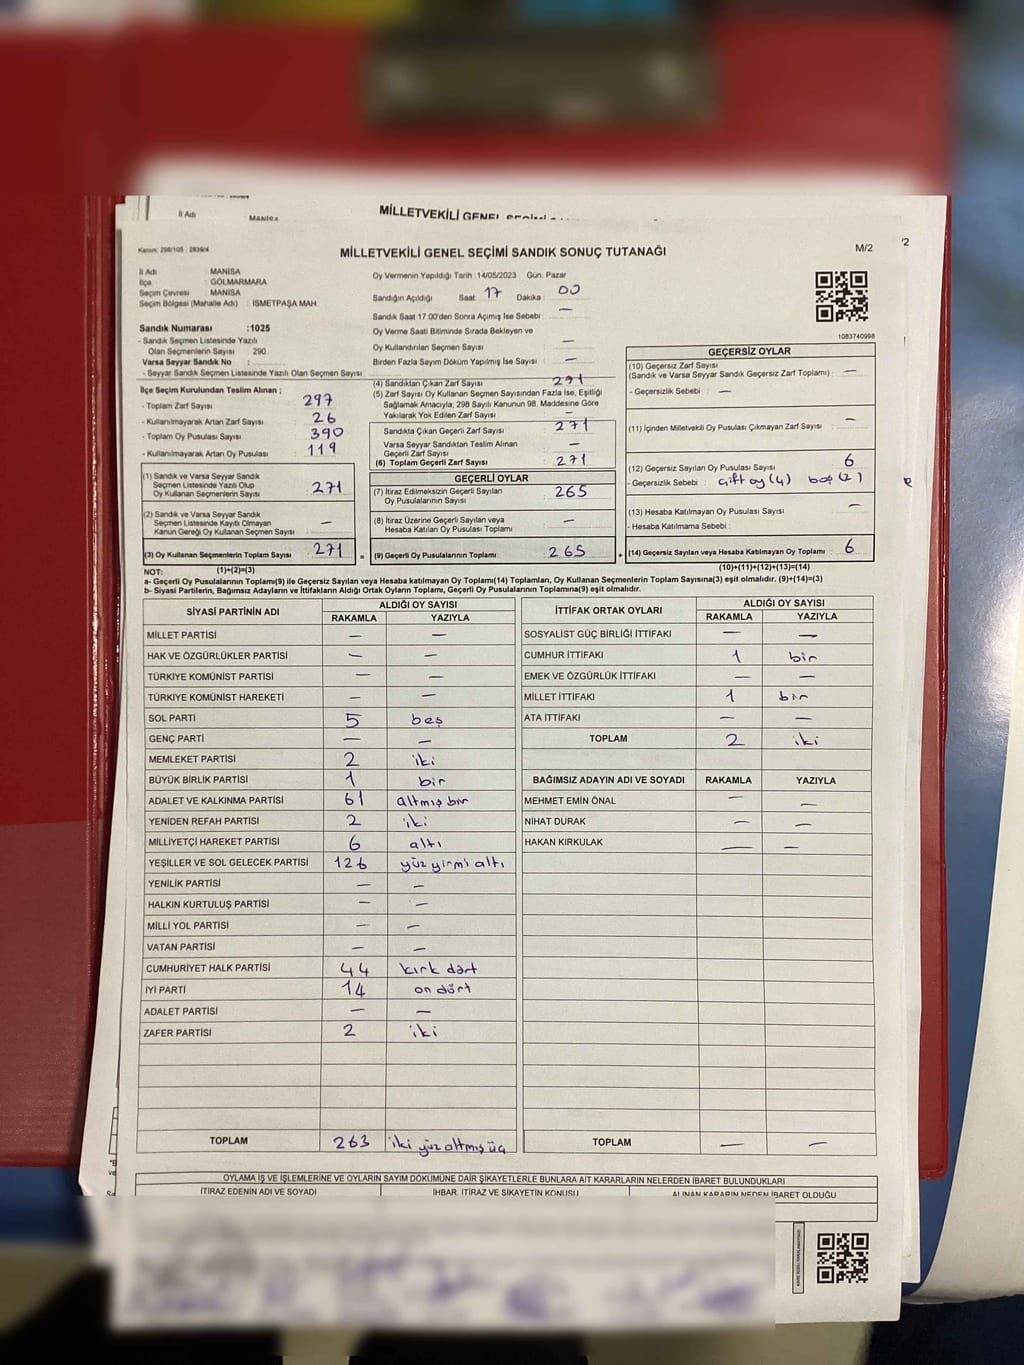 İl Adı MANİSA MİLLETVEKİLİ GENEL
Kanun: 298/105 ; 2839/4
MİLLETVEKİLİ GENEL SEÇİMİ SANDIK SONUÇ TUTANAĞI
M/2
İl Adı : MANİSA
İlçe : GÖLMARMARA
Seçim Çevresi : MANİSA
Seçim Bölgesi (Mahalle Adı) : İSMETPAŞA MAH.
Sandık Numarası :1025
- Sandık Seçmen Listesinde Yazılı
Olan Seçmenlerin Sayısı : 290
Varsa Seyyar Sandık No :
- Seyyar Sandık Seçmen Listesinde Yazılı Olan Seçmen Sayısı :
İlçe Seçim Kurulundan Teslim Alınan ;
- Toplam Zarf Sayısı : 297
- Kullanılmayarak Artan Zarf Sayısı : 26
- Toplam Oy Pusulası Sayısı : 390
- Kullanılmayarak Artan Oy Pusulası : 119
(1) Sandık ve Varsa Seyyar Sandık
Seçmen Listesinde Yazılı Olup
Oy Kullanan Seçmenlerin Sayısı : 271
(2) Sandık ve Varsa Seyyar Sandık
Seçmen Listesinde Kayıtlı Olmayan
Kanun Gereği Oy Kullanan Seçmen Sayısı : —
(3) Oy Kullanan Seçmenlerin Toplam Sayısı : 271
(1)+(2)=(3)
Oy Vermenin Yapıldığı Tarih :14/05/2023 Gün: Pazar
Sandığın Açıldığı Saat : 17 Dakika : 00
Sandık Saat 17.00'den Sonra Açılmış İse Sebebi : —
Oy Verme Saati Bitiminde Sırada Bekleyen ve
Oy Kullandırılan Seçmen Sayısı : —
Birden Fazla Sayım Döküm Yapılmış İse Sayısı : —
(4) Sandıktan Çıkan Zarf Sayısı : 271
(5) Zarf Sayısı Oy Kullanan Seçmen Sayısından Fazla İse, Eşitliği
Sağlamak Amacıyla, 298 Sayılı Kanunun 98. Maddesine Göre
Yakılarak Yok Edilen Zarf Sayısı : —
Sandıkta Çıkan Geçerli Zarf Sayısı : 271
Varsa Seyyar Sandıktan Teslim Alınan
Geçerli Zarf Sayısı : —
(6) Toplam Geçerli Zarf Sayısı : 271
GEÇERLİ OYLAR
(7) İtiraz Edilmeksizin Geçerli Sayılan
Oy Pusulalarının Sayısı : 265
(8) İtiraz Üzerine Geçerli Sayılan veya
Hesaba Katılan Oy Pusulası Toplamı : —
= (9) Geçerli Oy Pusulalarının Toplamı : 265
1083740998
GEÇERSİZ OYLAR
(10) Geçersiz Zarf Sayısı
(Sandık ve Varsa Seyyar Sandık Geçersiz Zarf Toplamı) : —
- Geçersizlik Sebebi : —
(11) İçinden Milletvekili Oy Pusulası Çıkmayan Zarf Sayısı : —
(12) Geçersiz Sayılan Oy Pusulası Sayısı : 6
- Geçersizlik Sebebi : çift oy (4) boş (2)
(13) Hesaba Katılmayan Oy Pusulası Sayısı : —
- Hesaba Katılmama Sebebi :
+ (14) Geçersiz Sayılan veya Hesaba Katılmayan Oy Toplamı : 6
(10)+(11)+(12)+(13)=(14)
NOT:
a- Geçerli Oy Pusulalarının Toplamı(9) ile Geçersiz Sayılan veya Hesaba katılmayan Oy Toplamı(14) Toplamları, Oy Kullanan Seçmenlerin Toplam Sayısına(3) eşit olmalıdır. (9)+(14)=(3)
b- Siyasi Partilerin, Bağımsız Adayların ve İttifakların Aldığı Ortak Oyların Toplamı, Geçerli Oy Pusulalarının Toplamına(9) eşit olmalıdır.
SİYASİ PARTİNİN ADI ALDIĞI OY SAYISI
RAKAMLA YAZIYLA
MİLLET PARTİSİ — —
HAK VE ÖZGÜRLÜKLER PARTİSİ — —
TÜRKİYE KOMÜNİST PARTİSİ — —
TÜRKİYE KOMÜNİST HAREKETİ — —
SOL PARTİ 5 beş
GENÇ PARTİ — —
MEMLEKET PARTİSİ 2 iki
BÜYÜK BİRLİK PARTİSİ 1 bir
ADALET VE KALKINMA PARTİSİ 61 altmış bir
YENİDEN REFAH PARTİSİ 2 iki
MİLLİYETÇİ HAREKET PARTİSİ 6 altı
YEŞİLLER VE SOL GELECEK PARTİSİ 126 yüz yirmi altı
YENİLİK PARTİSİ — —
HALKIN KURTULUŞ PARTİSİ — —
MİLLİ YOL PARTİSİ — —
VATAN PARTİSİ — —
CUMHURİYET HALK PARTİSİ 44 kırk dört
İYİ PARTİ 14 on dört
ADALET PARTİSİ — —
ZAFER PARTİSİ 2 iki
TOPLAM 263 iki yüz altmış üç
İTTİFAK ORTAK OYLARI ALDIĞI OY SAYISI
RAKAMLA YAZIYLA
SOSYALİST GÜÇ BİRLİĞİ İTTİFAKI — —
CUMHUR İTTİFAKI 1 bir
EMEK VE ÖZGÜRLÜK İTTİFAKI — —
MİLLET İTTİFAKI 1 bir
ATA İTTİFAKI — —
TOPLAM 2 iki
BAĞIMSIZ ADAYIN ADI VE SOYADI RAKAMLA YAZIYLA
MEHMET EMİN ÖNAL — —
NİHAT DURAK — —
HAKAN KIRKULAK — —
TOPLAM — —
OYLAMA İŞ VE İŞLEMLERİNE VE OYLARIN SAYIM DÖKÜMÜNE DAİR ŞİKAYETLERLE BUNLARA AİT KARARLARIN NELERDEN İBARET BULUNDUKLARI
İTİRAZ EDENİN ADI VE SOYADI İHBAR, İTİRAZ VE ŞİKAYETİN KONUSU ALINAN KARARIN NEDEN İBARET OLDUĞU